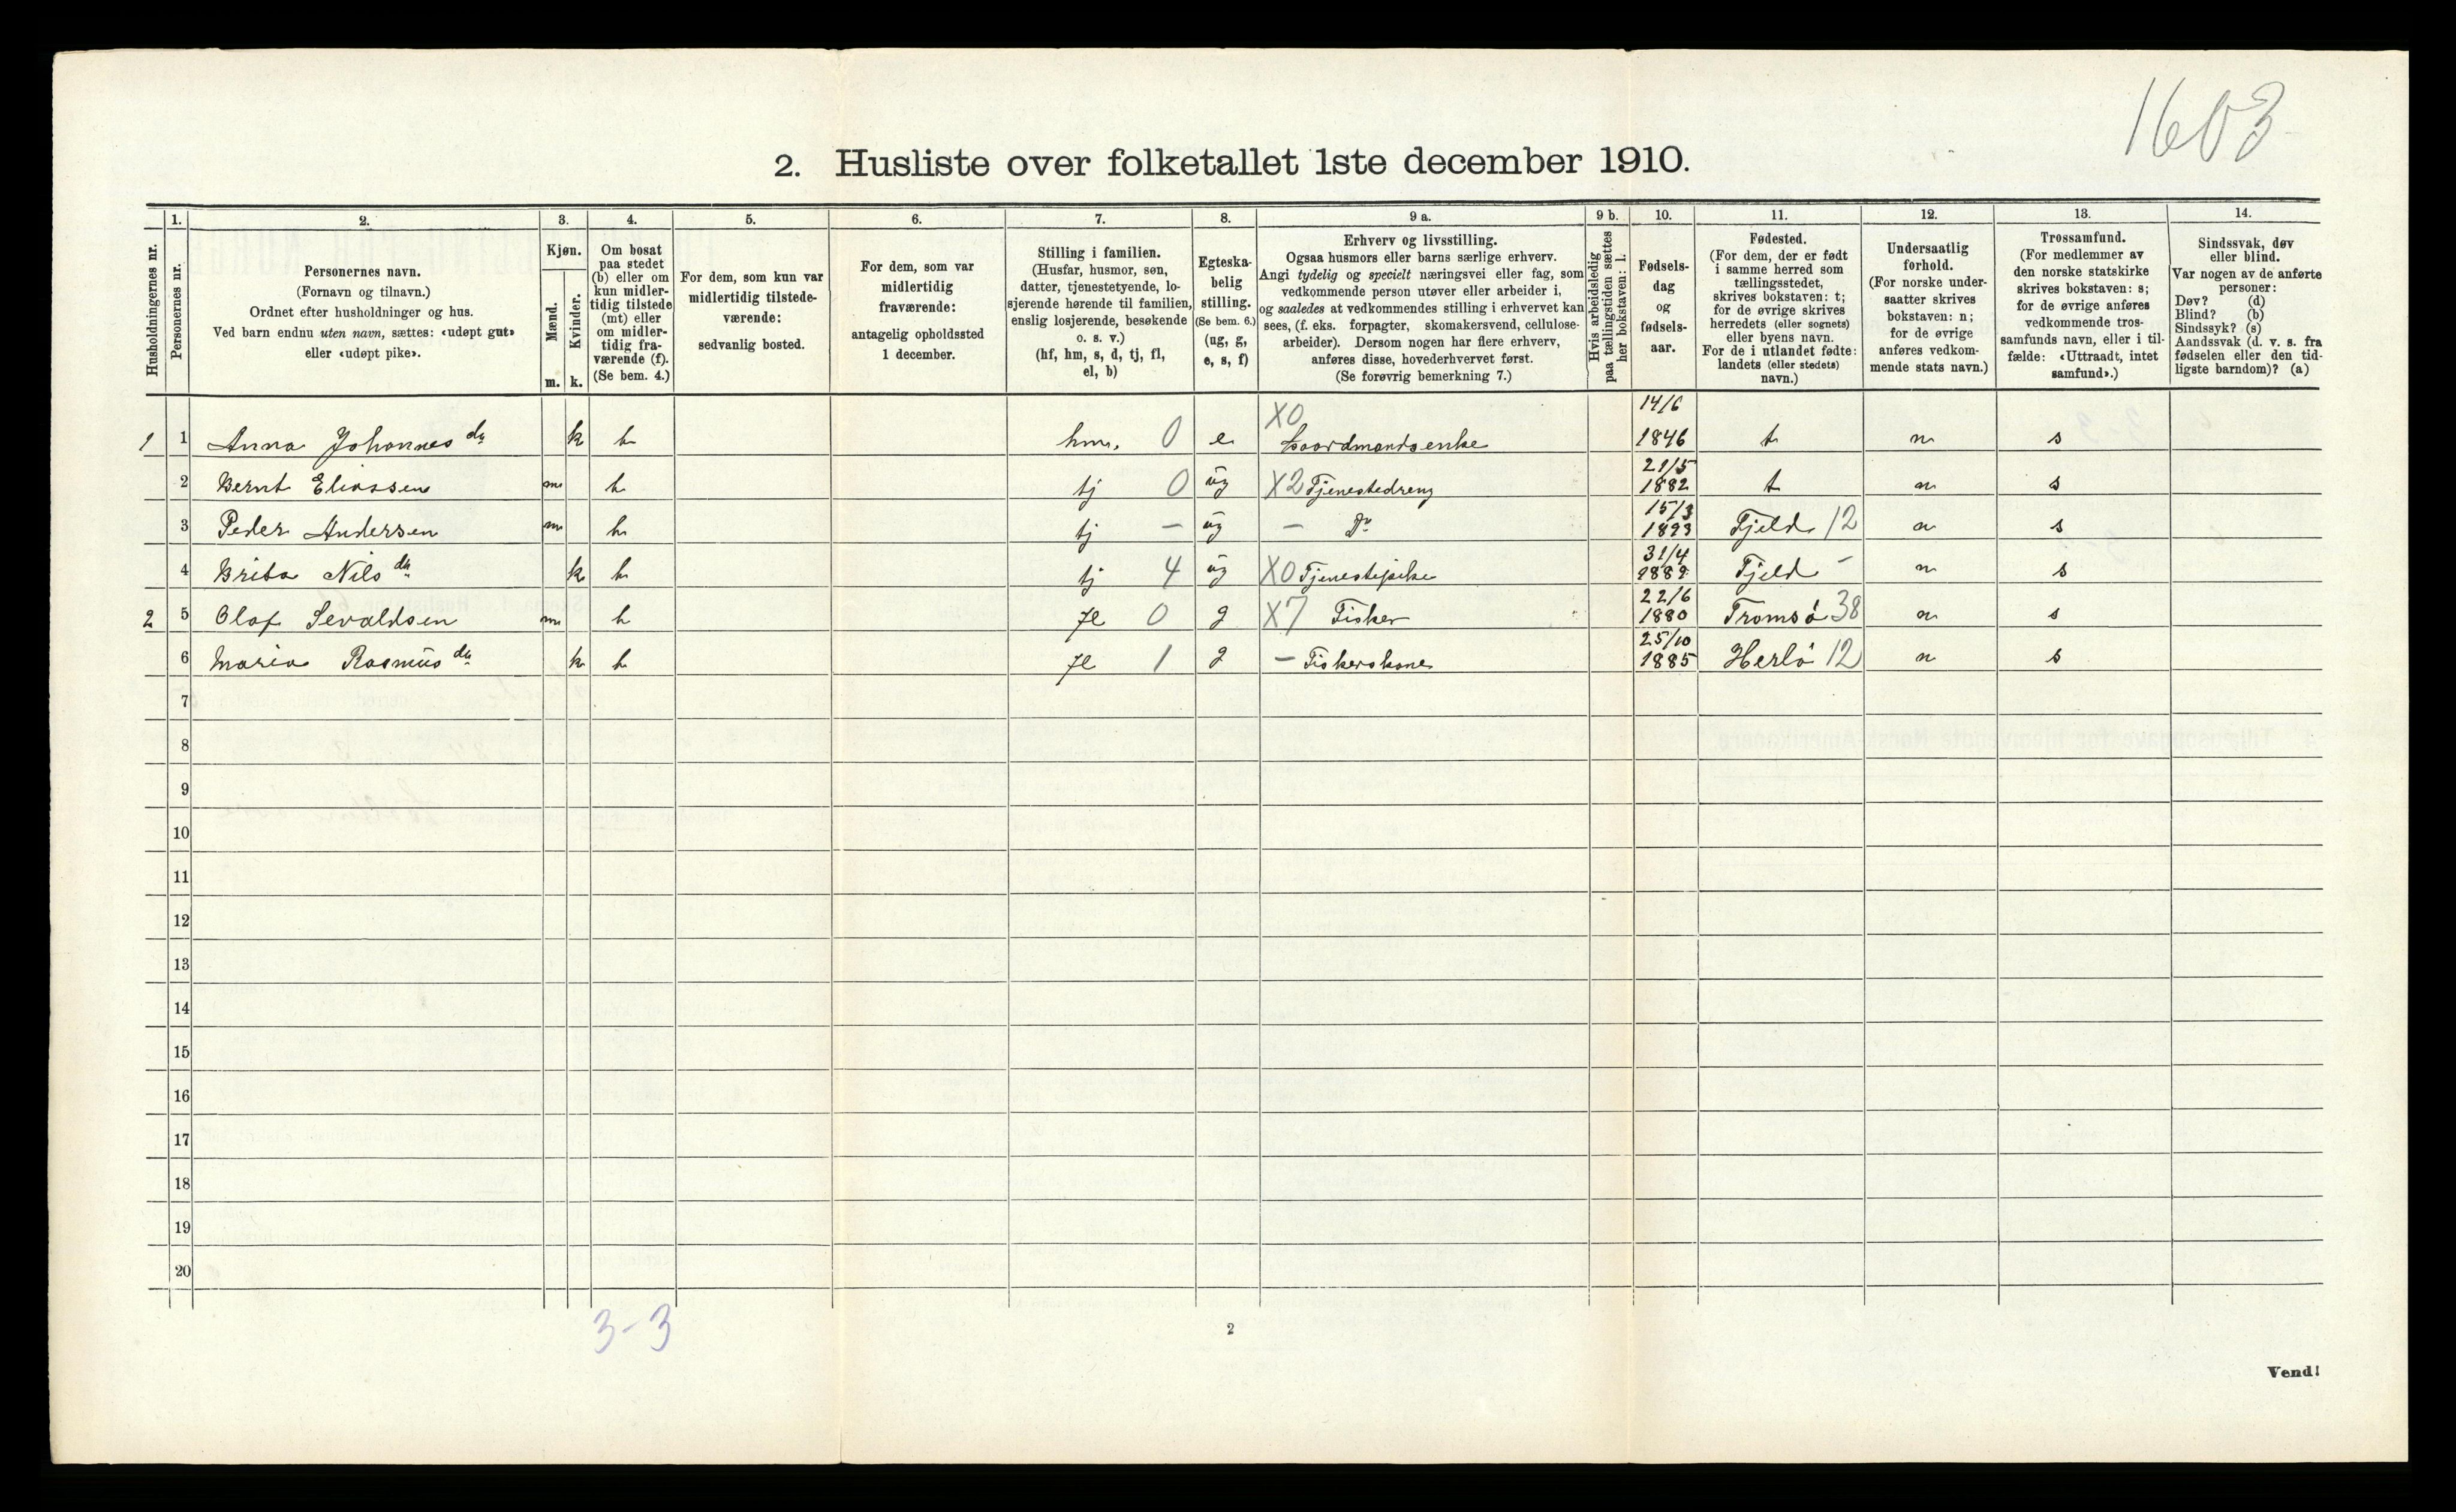 1603
2. Husliste over folketallet 1ste december 1910.
Husholdningernes nr.
1.
Personernes nr.
2.
Personernes navn.
(Fornavn og tilnavn.)
Ordnet efter husholdninger og hus.
Ved barn endnu uten navn, sættes: «udøpt gut»
eller «udøpt pike».
3.
Kjøn.
Mænd.
Kvinder.
m. k.
4.
Om bosat
paa stedet
(b) eller om
kun midler-
tidig tilstede
(mt) eller
om midler-
tidig fra-
værende (f).
(Se bem. 4.)
5.
For dem, som kun var
midlertidig tilstede-
værende:
sedvanlig bosted.
6.
For dem, som var
midlertidig
fraværende:
antagelig opholdssted
1 december.
7.
Stilling i familien.
(Husfar, husmor, søn,
datter, tjenestetyende, lo-
sjerende hørende til familien,
enslig losjerende, besøkende
o. s. v.)
(hf, hm, s, d, tj, fl,
el, b)
8.
Egteska-
belig
stilling.
(Se bem. 6.)
(ug, g,
e, s, f)
9 a.
Erhverv og livsstilling.
Ogsaa husmors eller barns særlige erhverv.
Angi tydelig og specielt næringsvei eller fag, som
vedkommende person utøver eller arbeider i,
og saaledes at vedkommendes stilling i erhvervet kan
sees, (f. eks. forpagter, skomakersvend, cellulose-
arbeider). Dersom nogen har flere erhverv,
anføres disse, hovederhvervet først.
(Se forøvrig bemerkning 7.)
9 b.
Hvis arbeidsledig
paa tællingstiden sættes
her bokstaven: l.
10.
Fødsels-
dag
og
fødsels-
aar.
11.
Fødested.
(For dem, der er født
i samme herred som
tællingsstedet,
skrives bokstaven: t;
for de øvrige skrives
herredets (eller sognets)
eller byens navn.
For de i utlandet fødte:
landets (eller stedets)
navn.)
12.
Undersaatlig
forhold.
(For norske under-
saatter skrives
bokstaven: n;
for de øvrige
anføres vedkom-
mende stats navn.)
13.
Trossamfund.
(For medlemmer av
den norske statskirke
skrives bokstaven: s;
for de øvrige anføres
vedkommende tros-
samfunds navn, eller i til-
fælde: «Uttraadt, intet
samfund».)
14.
Sindssvak, døv
eller blind.
Var nogen av de anførte
personer:
Døv? (d)
Blind? (b)
Sindssyk? (s)
Aandssvak (d. v. s. fra
fødselen eller den tid-
ligste barndom)? (a)
1 1 Anna Johannes da k b hm. 0 e X0 Gaardmandsenke 14/6 1846 t n s
2 Bernt Eliassen m b tj 0 ug X2 Tjenestedreng 21/5 1882 t n s
3 Peder Andersen m b tj – ug – Do 15/3 1893 Fjeld 12 n s
4 Brita Nils da k b tj 4 ug X0 Tjenestepike 31/4 1889 Fjeld – n s
2 5 Olaf Sevaldsen m b fl 0 g X7 Fisker 22/6 1880 Tromsø 38 n s
6 Maria Rasmus da k b fl 1 g – Fiskerskone 25/10 1885 Herlø 12 n s
7
8
9
10
11
12
13
14
15
16
17
18
19
20
3-3
2
Vend!